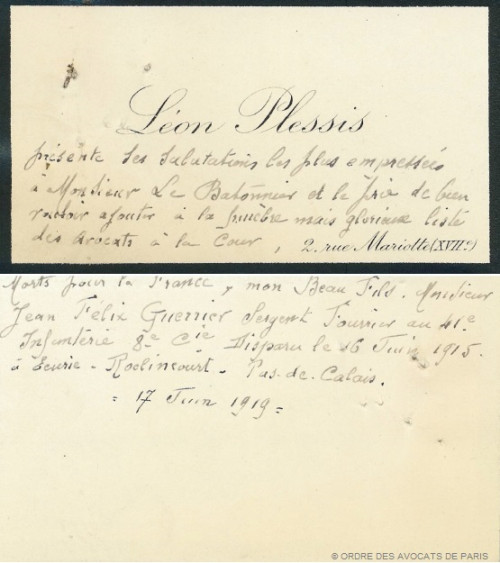 Léon Plessis
présente ses salutations les plus empressées
à Monsieur Le Batonnier et le prie de bien
vouloir ajouter à la funèbre mais glorieuse liste
des Avocats à la Cour, 2, rue Mariotte (XVIIe)
Morts pour la France, mon Beau Fils. Monsieur
Jean Félix Guerrier Sergent Fourrier au 41e
Infanterie 8e Cie Disparu le 16 Juin 1915.
à Ecurie - Roclincourt - Pas-de-Calais.
= 17 Juin 1919 =
© ORDRE DES AVOCATS DE PARIS